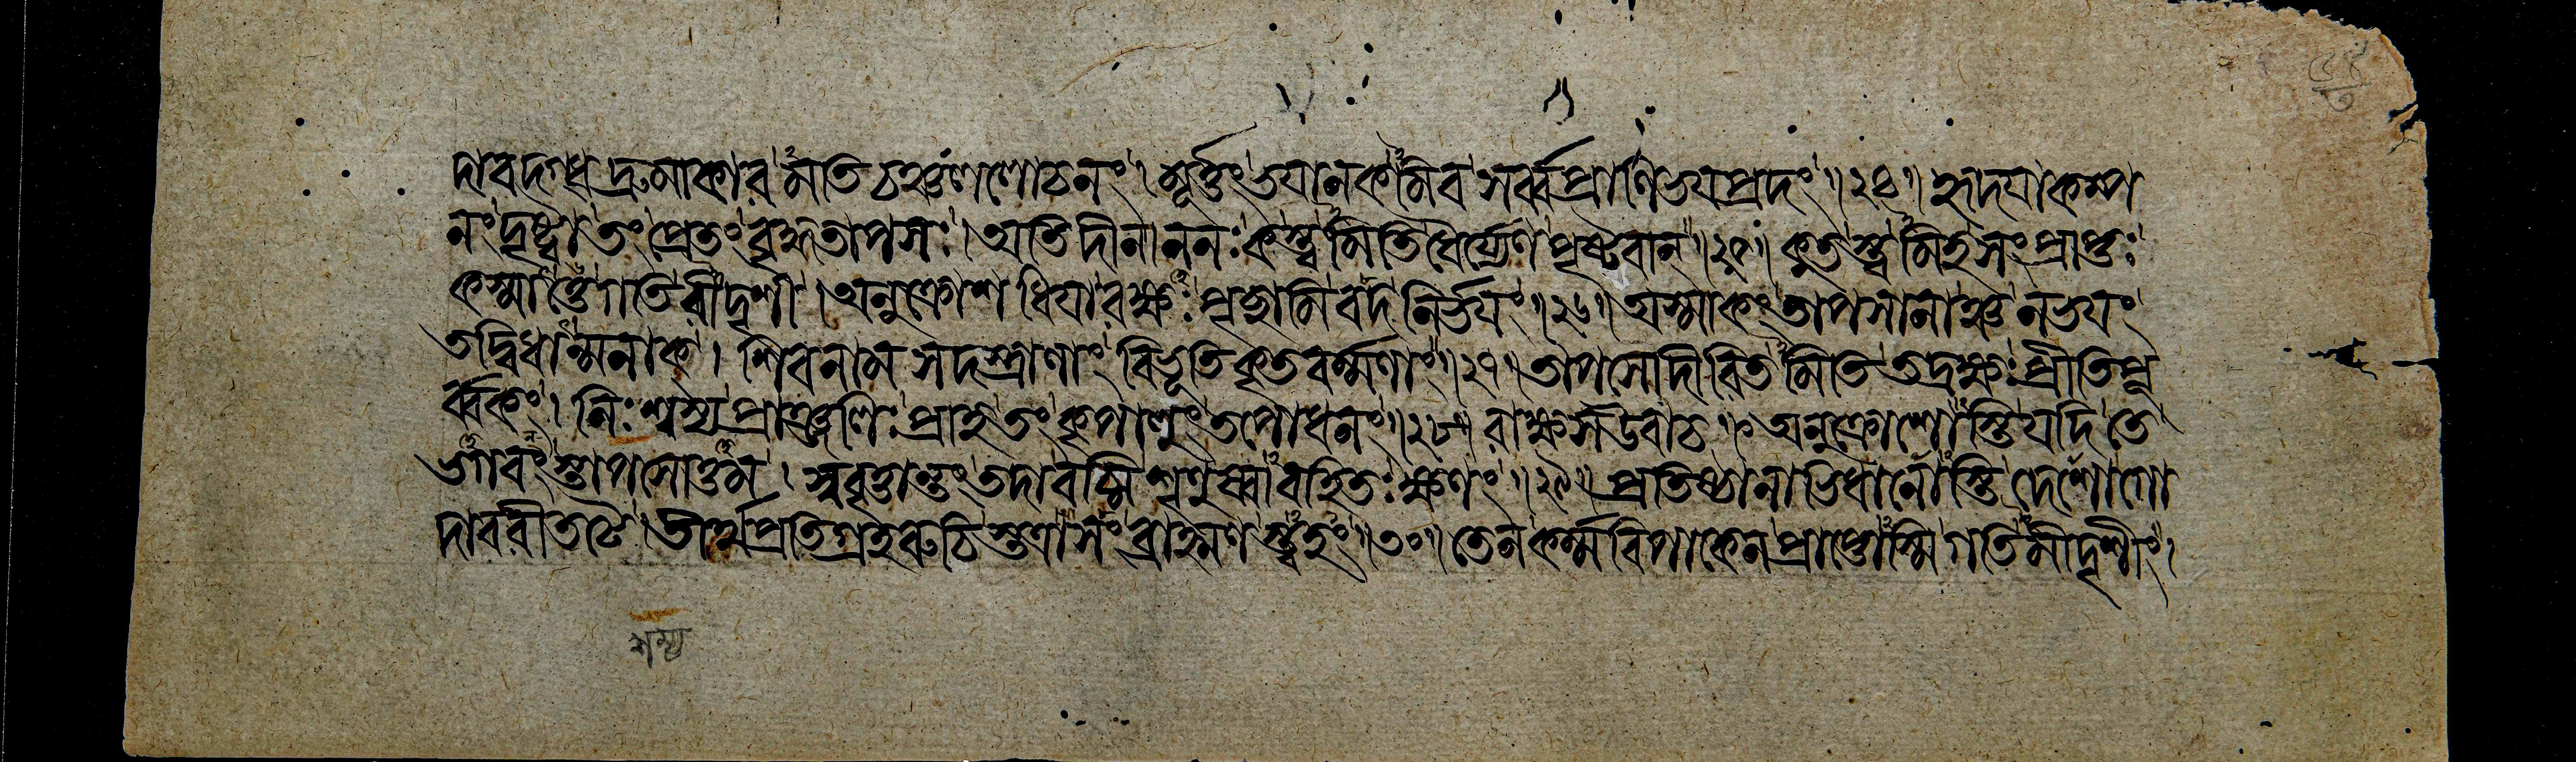 দাবদগ্ধদ্রুমাকারমতিচঞ্চললোচনং। মূর্ত্তং ভয়ানকমিব সর্ব্বপ্রাণিভয়প্রদং॥২৪॥ হৃদয়াকম্প
নং দৃষ্ট্বা তং প্রেতং বৃদ্ধতাপসঃ। অতিদীনাননঃ কস্ত্বমিতি ধৈর্য্যেণ পৃষ্টবান্॥২৫॥ কুতস্ত্বমিহ সংপ্রাপ্তঃ
কস্মাত্তে গতিরীদৃশী। অনুক্রোশধিয়া রক্ষঃ পৃচ্ছামি বদ নির্ভয়ং॥২৬॥ অস্মাকং তাপসানাঞ্চ ন ভয়ং
ত্বদ্বিধান্মনাক্। শিবনামসদস্ত্রাণাং বিভূতিকৃতবর্ম্মণাং॥২৭॥ তাপসোদীরিতমিতি তদ্রক্ষঃ প্রীতিপূ
র্ব্বকং। নিঃশ্বস্য প্রাঞ্জলিঃ প্রাহ তং কৃপালুং তপোধনং॥২৮॥ রাক্ষস উবাচ॥ অনুক্রোশোঽস্তি যদি তে
ভগবংস্তাপসোত্তম। স্ববৃত্তান্তং তদা বচ্মি শৃণুষ্বাবহিতঃ ক্ষণং॥২৯॥ প্রতিষ্ঠানাভিধানোঽস্তি দেশো গো
দাবরীতটে। তীর্থপ্রতিগ্রহরুচিস্তত্রাসং ব্রাহ্মণস্ত্বহং॥৩০॥ তেন কর্ম্মবিপাকেন প্রাপ্তোঽস্মি গতিমীদৃশীং।